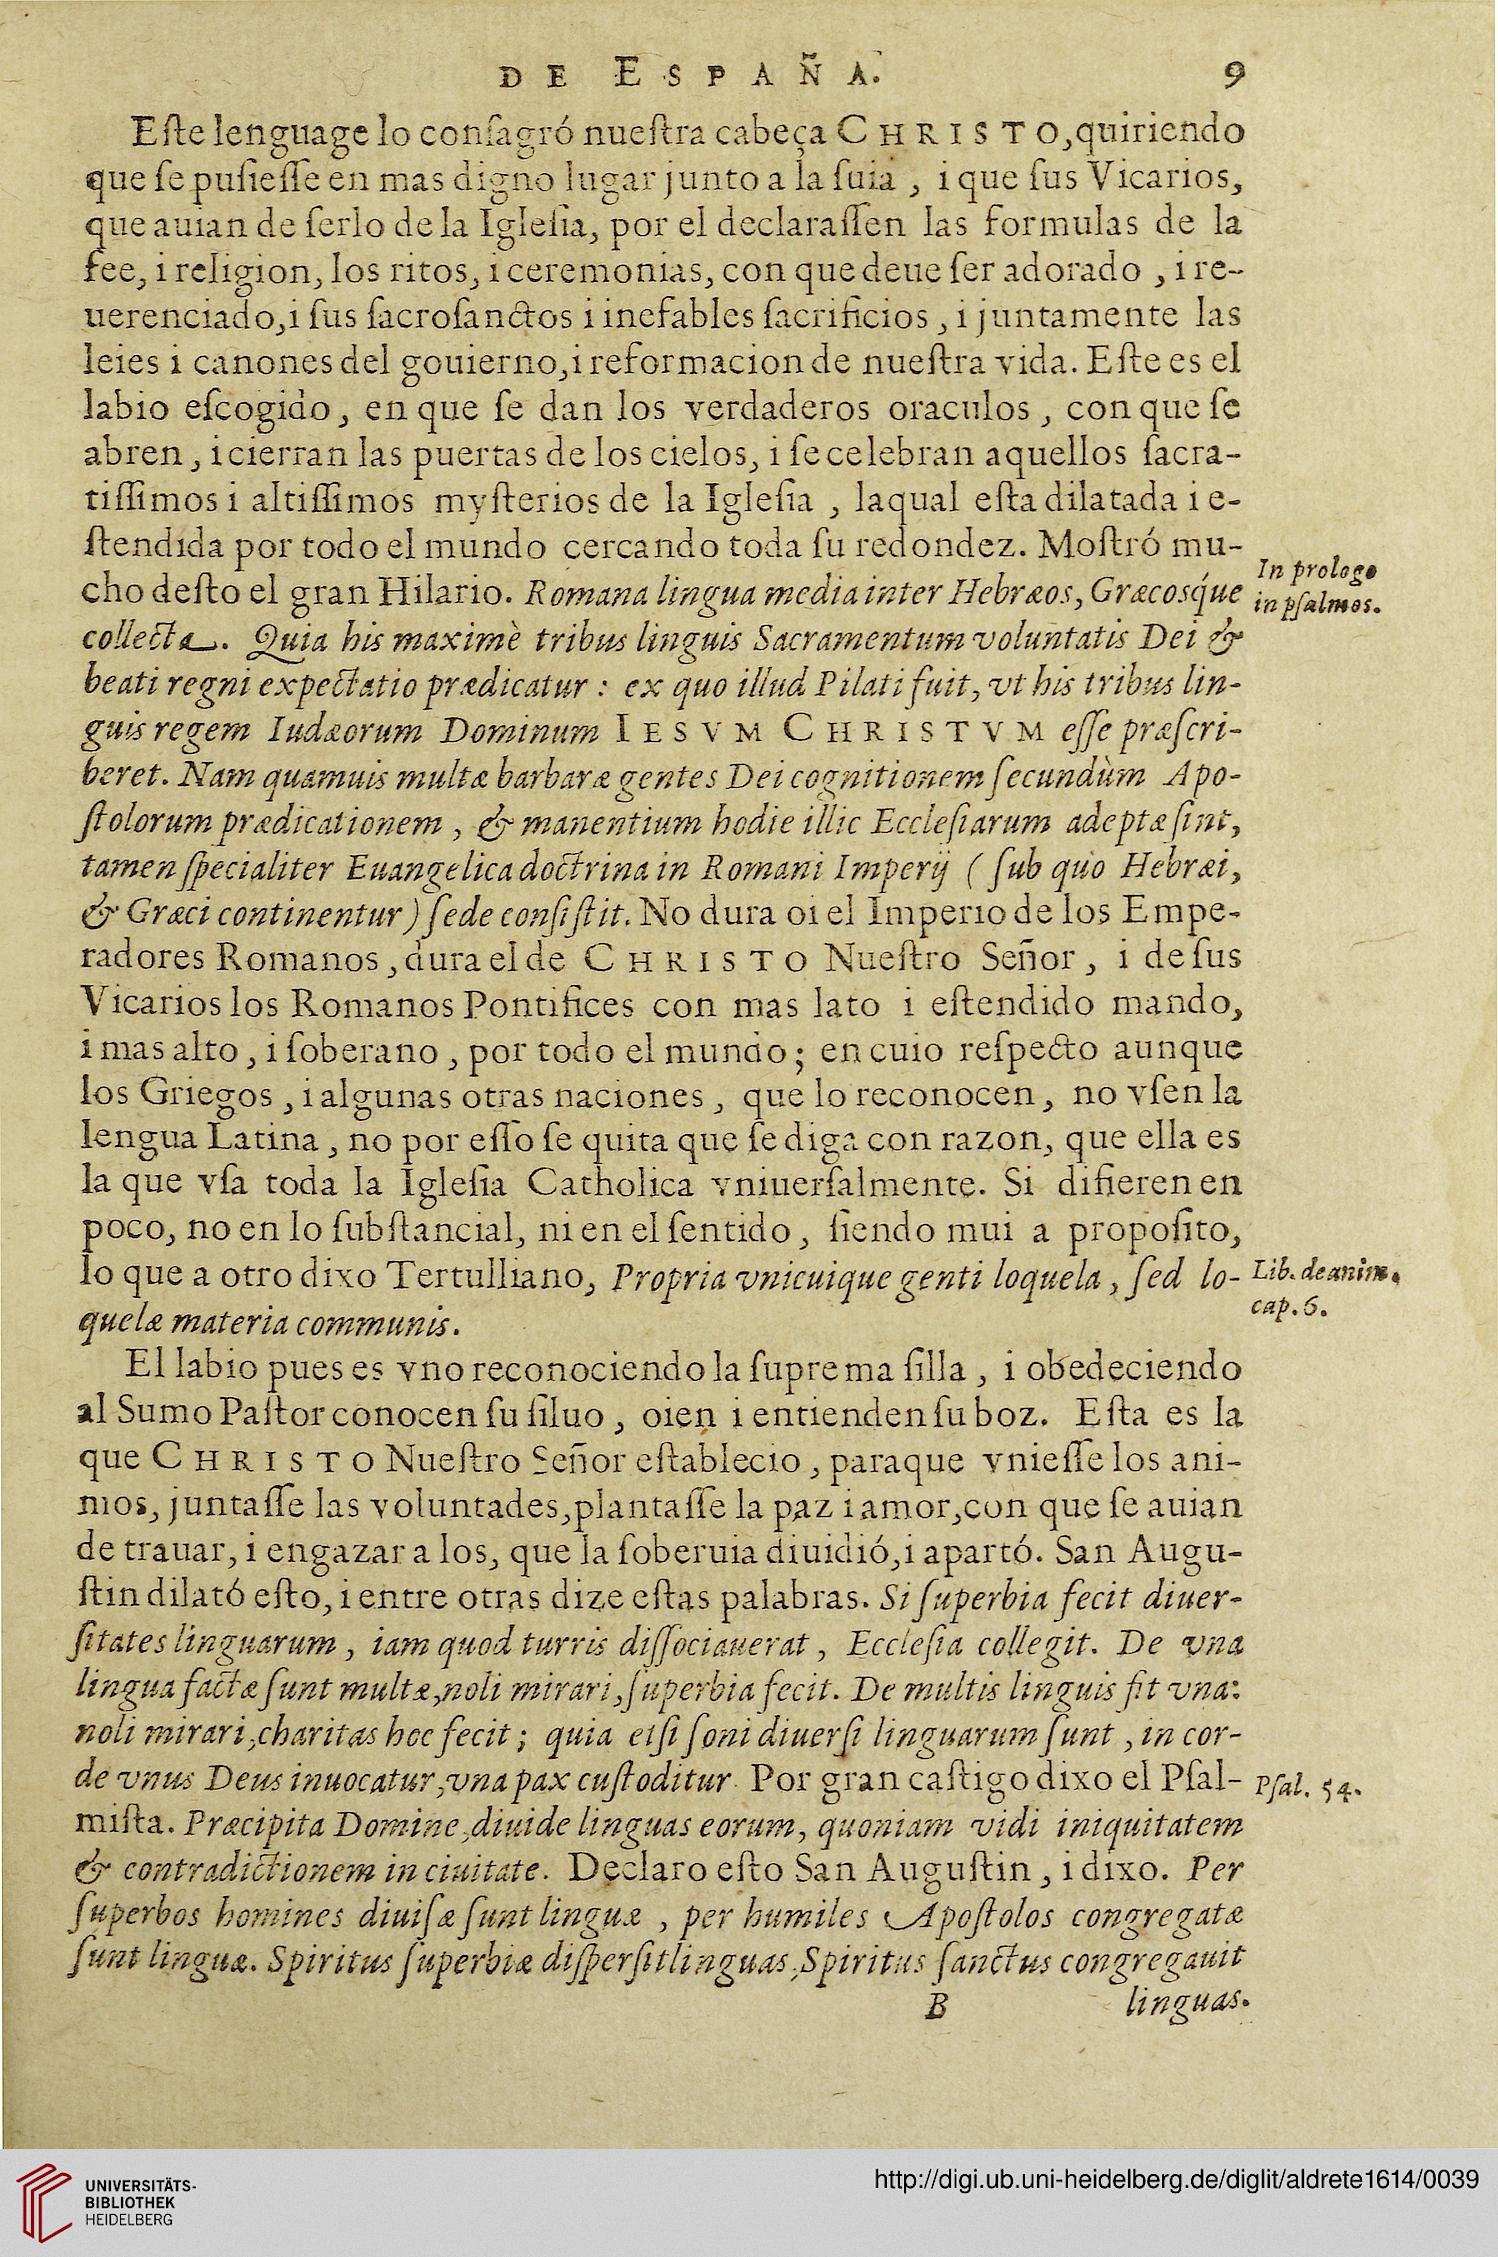 DE ESPAÑA. 9
Eſte lenguage lo conſagró nueſtra cabeça CHRISTO, quiriendo
que ſe puſieſſe en mas digno lugar junto a la ſuia , i que ſus Vicarios,
que auian de ſerlo de la Igleſia, por el declaraſſen las formulas de la
fee, i religion, los ritos, i ceremonias, con que deue ſer adorado , i re-
uerenciado, i ſus ſacroſanctos i inefables ſacrificios , i juntamente las
leies i canones del gouierno, i reformacion de nueſtra vida. Eſte es el
labio eſcogido, en que ſe dan los verdaderos oraculos , con que ſe
abren , i cierran las puertas de los cielos, i ſe celebran aquellos ſacra-
tiſſimos i altiſſimos myſterios de la Igleſia , laqual eſta dilatada i e-
ſtendida por todo el mundo cercando toda ſu redondez. Moſtró mu-
cho deſto el gran Hilario. Romana lingua media inter Hebræos, Græcosque
In prologo
in pſalmos.
collecta. Quia his maximè tribus linguis Sacramentum voluntatis Dei &
beati regni expectatio prædicatur : ex quo illud Pilati fuit, vt his tribus lin-
guis regem Iudæorum Dominum IESVM CHRISTVM eſſe præſcri-
beret. Nam quamuis multæ barbaræ gentes Dei cognitionem ſecundùm Apo-
ſtolorum prædicationem , & manentium hodie illic Eccleſiarum adeptæ ſint,
tamen ſpecialiter Euangelica doctrina in Romani Imperij ( ſub quo Hebræi,
& Græci continentur ) ſede conſiſtit. No dura oi el Imperio de los Empe-
radores Romanos , dura el de CHRISTO Nueſtro Señor , i de ſus
Vicarios los Romanos Pontifices con mas lato i eſtendido mando,
i mas alto , i ſoberano , por todo el mundo; en cuio reſpecto aunque
los Griegos , i algunas otras naciones , que lo reconocen, no vſen la
lengua Latina , no por eſſo ſe quita que ſe diga con razon, que ella es
la que vſa toda la Igleſia Catholica vniuerſalmente. Si difieren en
poco, no en lo ſubſtancial, ni en el ſentido , ſiendo mui a propoſito,
lo que a otro dixo Tertulliano, Propria vnicuique genti loquela , ſed lo-
Lib. de anim.
cap. 6.
quelæ materia communis.
El labio pues es vno reconociendo la ſuprema ſilla , i obedeciendo
al Sumo Paſtor conocen ſu ſiluo , oien i entienden ſu boz. Eſta es la
que CHRISTO Nueſtro Señor eſtablecio , paraque vnieſſe los ani-
mos, juntaſſe las voluntades, plantaſſe la paz i amor, con que ſe auian
de trauar, i engazar a los, que la ſoberuia diuidió, i apartó. San Augu-
ſtin dilató eſto, i entre otras dize eſtas palabras. Si ſuperbia fecit diuer-
ſitates linguarum , iam quod turris diſſociauerat , Eccleſia collegit. De vna
lingua factæ ſunt multæ, noli mirari, ſuperbia fecit. De multis linguis fit vna:
noli mirari, charitas hoc fecit ; quia etſi ſoni diuerſi linguarum ſunt , in cor-
de vnus Deus inuocatur, vna pax cuſtoditur. Por gran caſtigo dixo el Pſal-
Pſal. 54.
miſta. Præcipita Domine, diuide linguas eorum, quoniam vidi iniquitatem
& contradictionem in ciuitate. Declaro eſto San Auguſtin , i dixo. Per
ſuperbos homines diuiſæ ſunt linguæ , per humiles Apoſtolos congregatæ
ſunt linguæ. Spiritus ſuperbiæ diſperſit linguas, Spiritus ſanctus congregauit
B linguas.
UNIVERSITÄTS-
BIBLIOTHEK
HEIDELBERG
http://digi.ub.uni-heidelberg.de/diglit/aldrete1614/0039